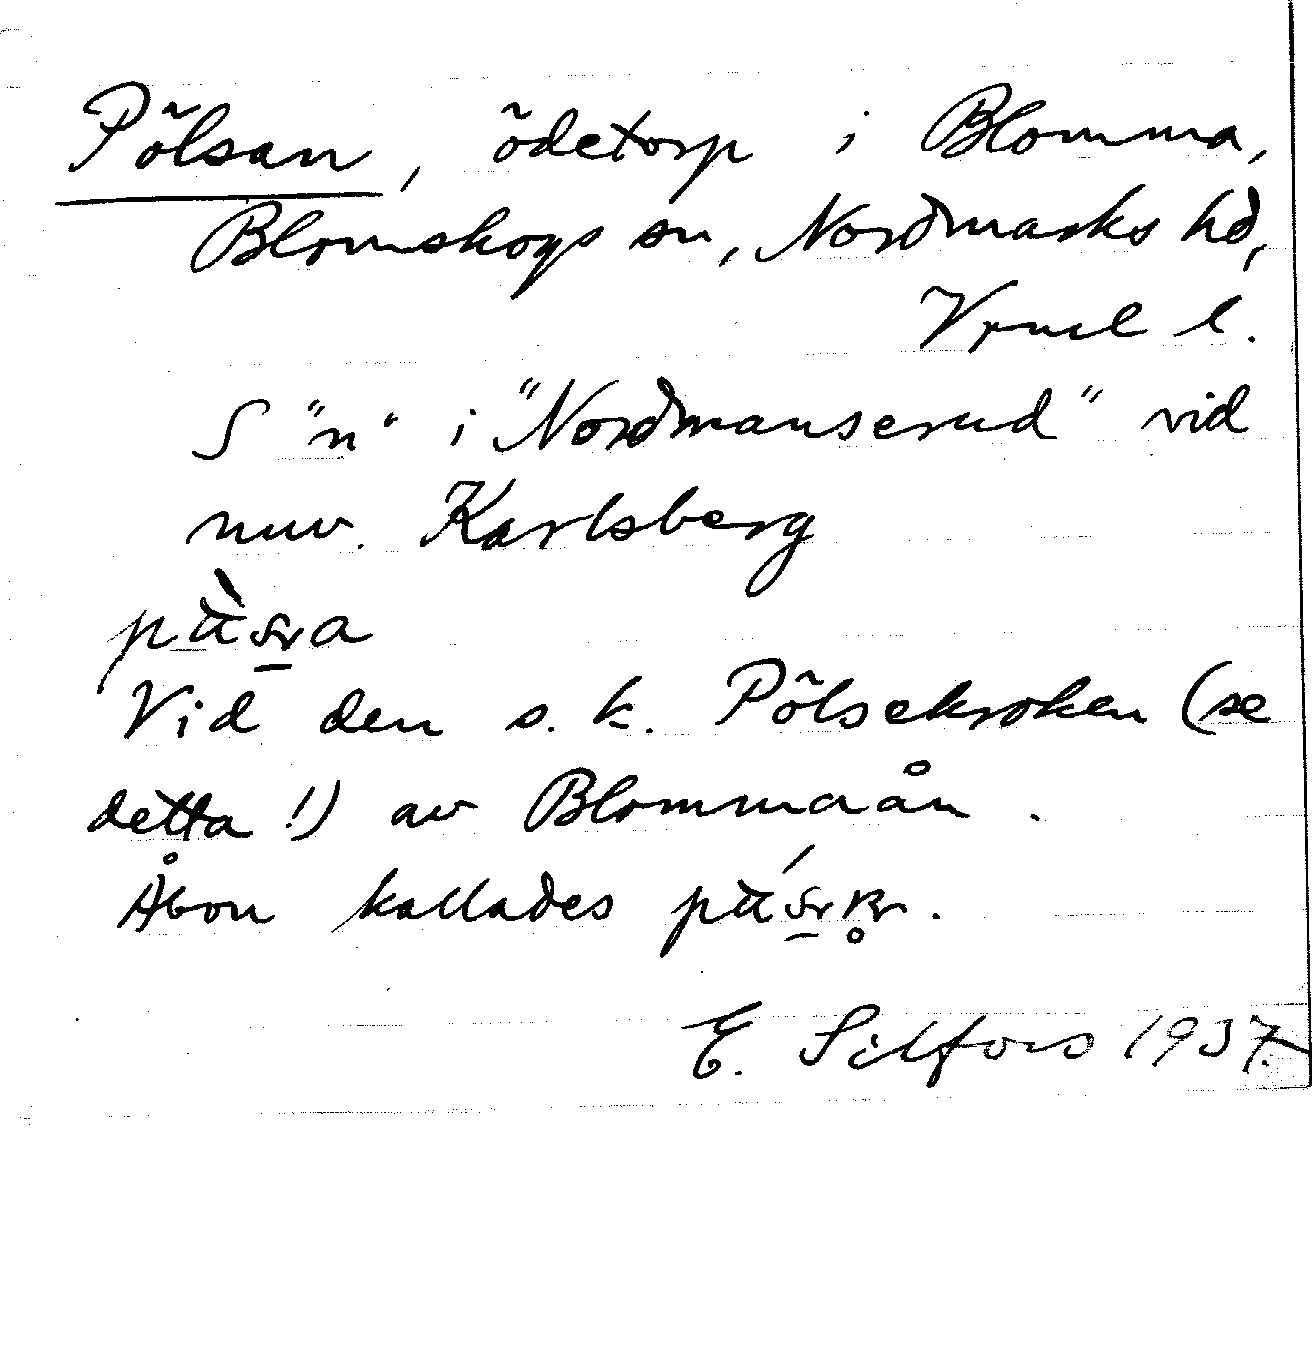 Pölsan, ödetorp i Blomma,
Blomskogs sn, Nordmarks hd,
Vrml l.
S "n" i "Nordmanserud" vid
nuv. Karlsberg
Vid den s. k. Pölsekroken (se
detta!) av Blommaån.
Åbon kallades
E. Silfors 1937.